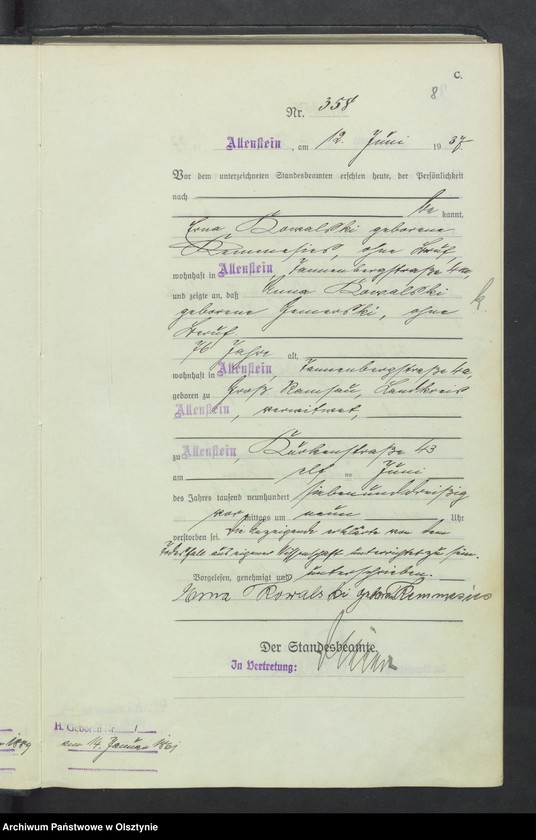 C.
8
Nr. 358
Allenstein, am 12. Juni 1937.
Vor dem unterzeichneten Standesbeamten erschien heute, der Persönlichkeit
nach be kannt,
Erna Kowalski geborene
Remmesies, ohne Beruf,
wohnhaft in Allenstein, Tannenbergstraße 4a,
und zeigte an, daß Anna Kowalski
geborene ohne
Beruf,
76 Jahre alt,
wohnhaft in Allenstein, Tannenbergstraße 4a,
geboren zu Groß Ramsau, Landkreis
Allenstein, verwitwet,
zu Allenstein, 43
am elf ten Juni
des Jahres tausend neunhundert siebenunddreißig
vor mittags um neun Uhr
verstorben sei. Die Anzeigende erklärte von dem
Todesfall aus eigener Wissenschaft unterrichtet zu sein.
Vorgelesen, genehmigt und unterschrieben.
Erna Kowalski geborene Remmesies
Der Standesbeamte.
In Vertretung:
H. Geboren Nr. /
am 14. Januar 1861
1889
Archiwum Państwowe w Olsztynie